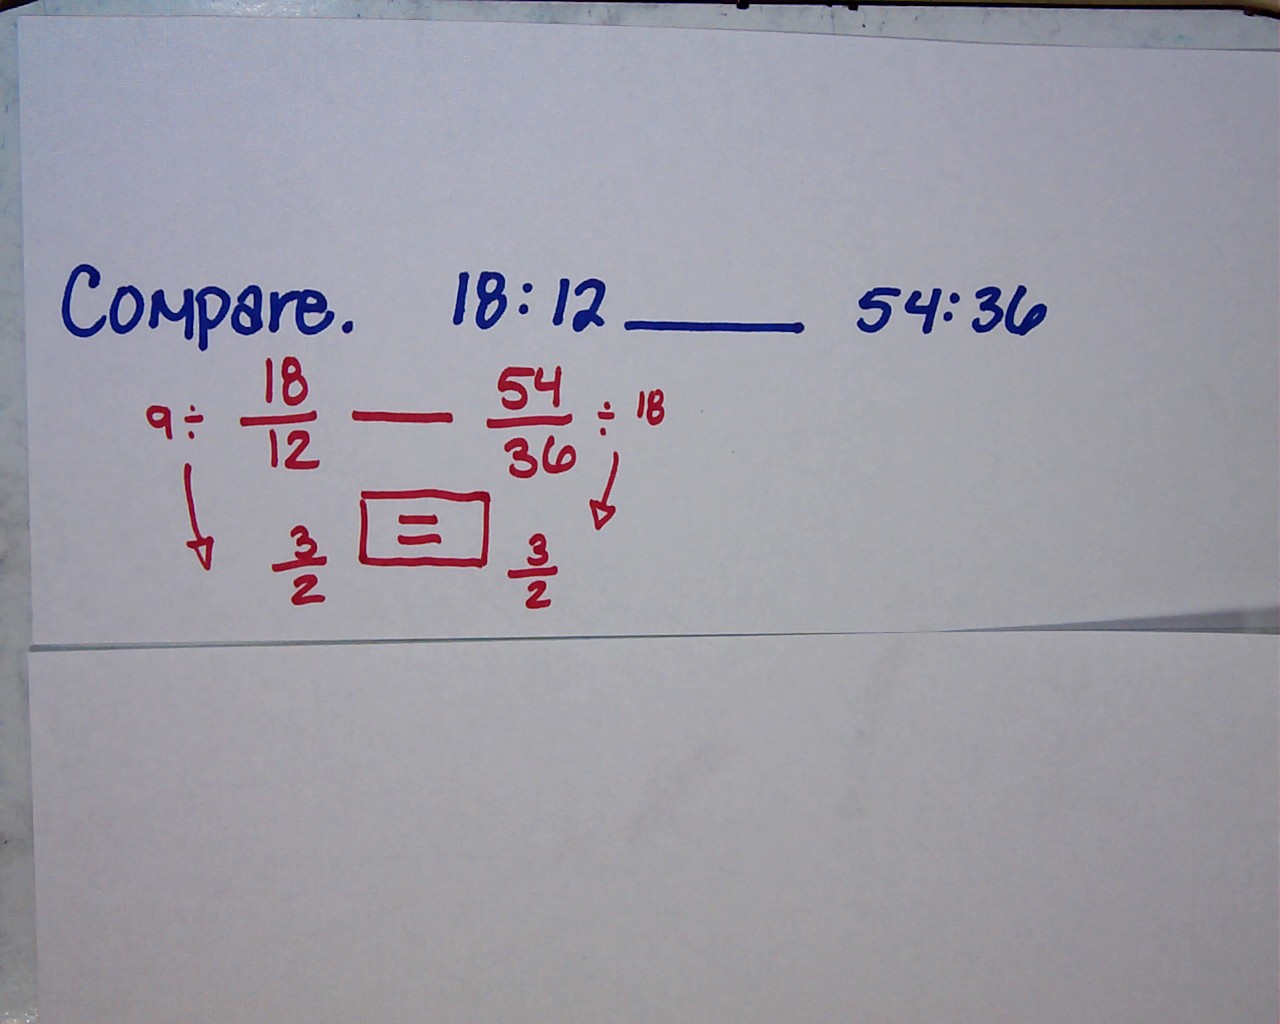 Compare. 18:12 ____ 54:36
9÷ 18/12 — 54/36 ÷ 18
3/2 = 3/2